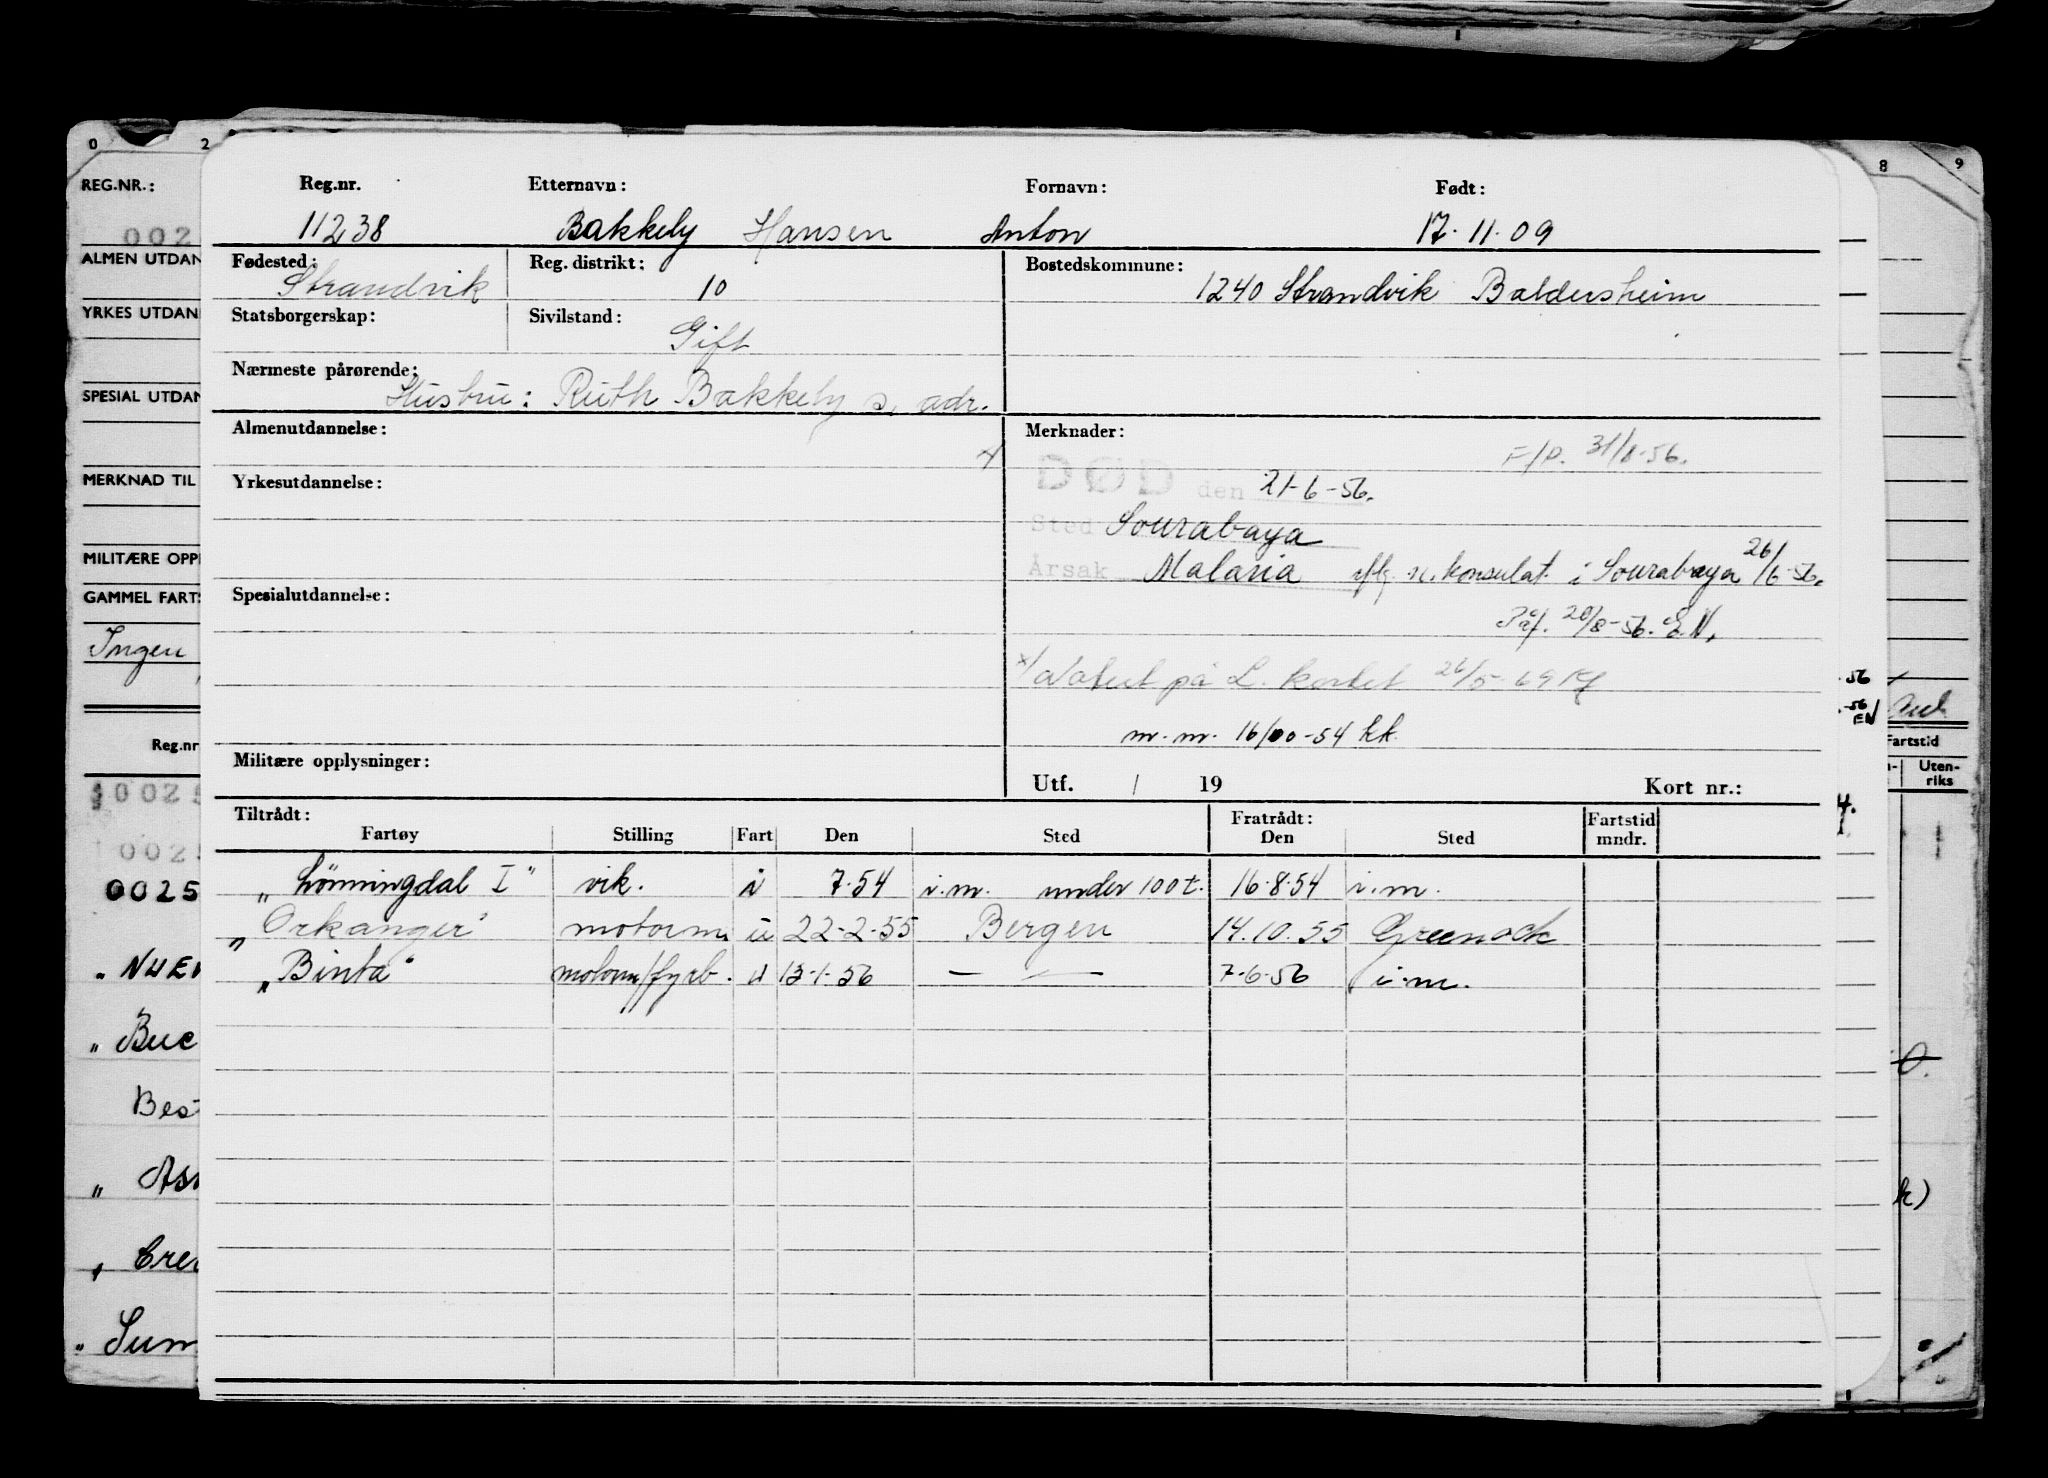 0 2 8 9
REG.NR.:
002
ALMEN UTDAN
YRKES UTDAN
SPESIAL UTDAN
MERKNAD TIL
MILITÆRE OPPL
GAMMEL FARTS
Ingen
Reg.nr
0025
0025
0025
" Buc
Best
" Asi
" Sum
Reg.nr. Etternavn: Fornavn: Født:
11238 Bakkely Hansen Anton 17.11.09
Fødested: Reg. distrikt: Bostedskommune:
Strandvik 10 1240 Strandvik Baldersheim
Statsborgerskap: Sivilstand:
Gift
Nærmeste pårørende:
Hustru: Ruth Bakkely s. adr.
Almenutdannelse: Merknader:
F/P. 31/8-56.
Yrkesutdannelse: DØD den 21-6-56.
Sted Sourabaya
Årsak Malaria iflg. n. konsulat i Sourabaya 26/6-56.
Spesialutdannelse:
Påf. 20/8-56. E.N.
x/ Notert på L. kortet 26/5-69
m.m. 16/00-54 kk.
Militære opplysninger: Utf. / 19 Kort nr.:
Tiltrådt: Fratrådt: Fartstid
Fartøy Stilling Fart Den Sted Den Sted mndr.
"Lønningdal I" vik. i 7.54 i.m. under 100 t. 16.8.54 i.m.
"Orkanger" motorm. u 22-2-55 Bergen 14.10.55 Greenock
"Binta" motorm/fyrb. u 13-1-56 — — 7-6-56 i.m.
56
-56 EN
Fartstid
Uten-
riks
k)